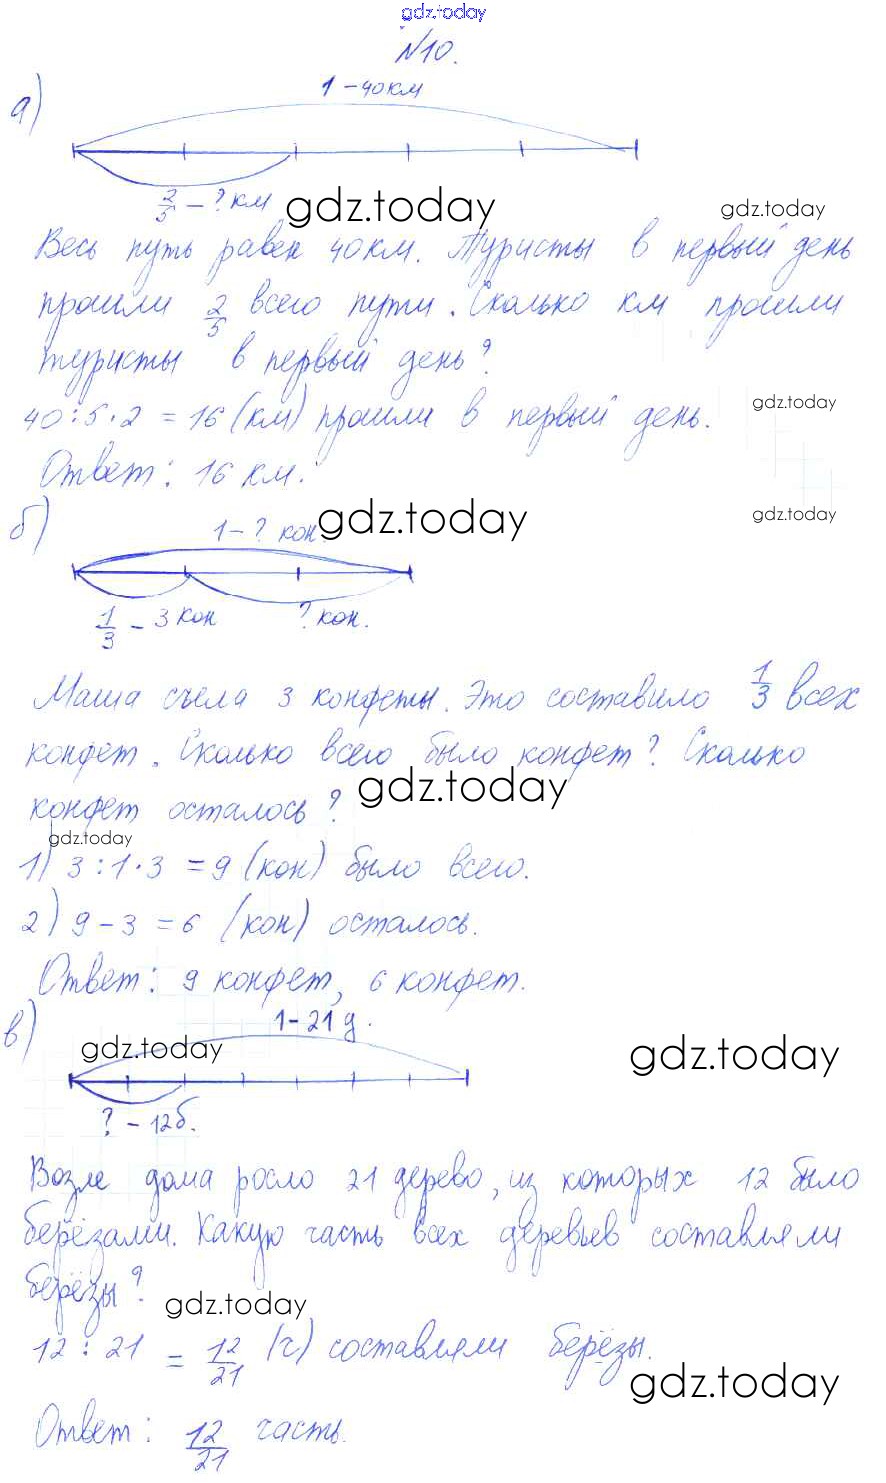 gdz.today
№10.
а) 1 – 40 км
2/5 – ? км gdz.today gdz.today
Весь путь равен 40 км. Туристы в первый день
прошли 2/5 всего пути. Сколько км прошли
туристы в первый день?
gdz.today
40 : 5 · 2 = 16 (км) прошли в первый день.
Ответ: 16 км.
gdz.today
б) 1 – ? кон. gdz.today
1/3 – 3 кон ? кон.
Маша съела 3 конфеты. Это составило 1/3 всех
конфет. Сколько всего было конфет? Сколько
gdz.today
конфет осталось?
gdz.today
1) 3 : 1 · 3 = 9 (кон) было всего.
2) 9 – 3 = 6 (кон) осталось.
Ответ: 9 конфет, 6 конфет.
в) 1 – 21 д.
gdz.today gdz.today
? – 12 б.
Возле дома росло 21 дерево, из которых 12 было
берёзами. Какую часть всех деревьев составляли
берёзы?
gdz.today
12 : 21 = 12/21 (ч) составляли берёзы.
gdz.today
Ответ: 12/21 часть.